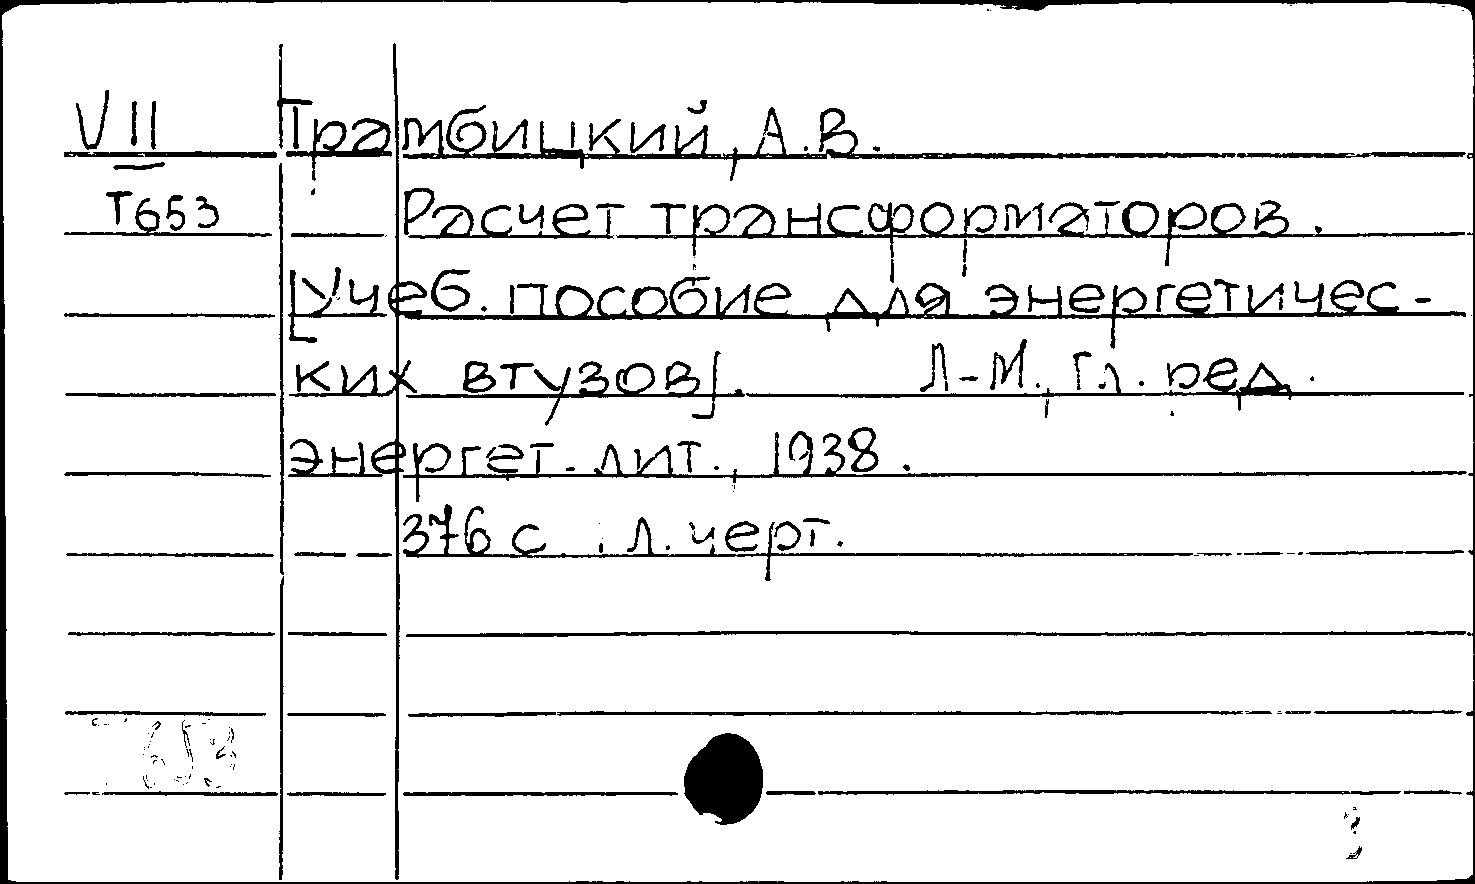 VII Трамбицкий, А.В.
Т653 Расчет трансформаторов.
[Учеб. пособие для энергетичес-
ких втузов]. Л-М., Гл. ред.
энергет. лит., 1938.
376 с. л. черт.
653
3